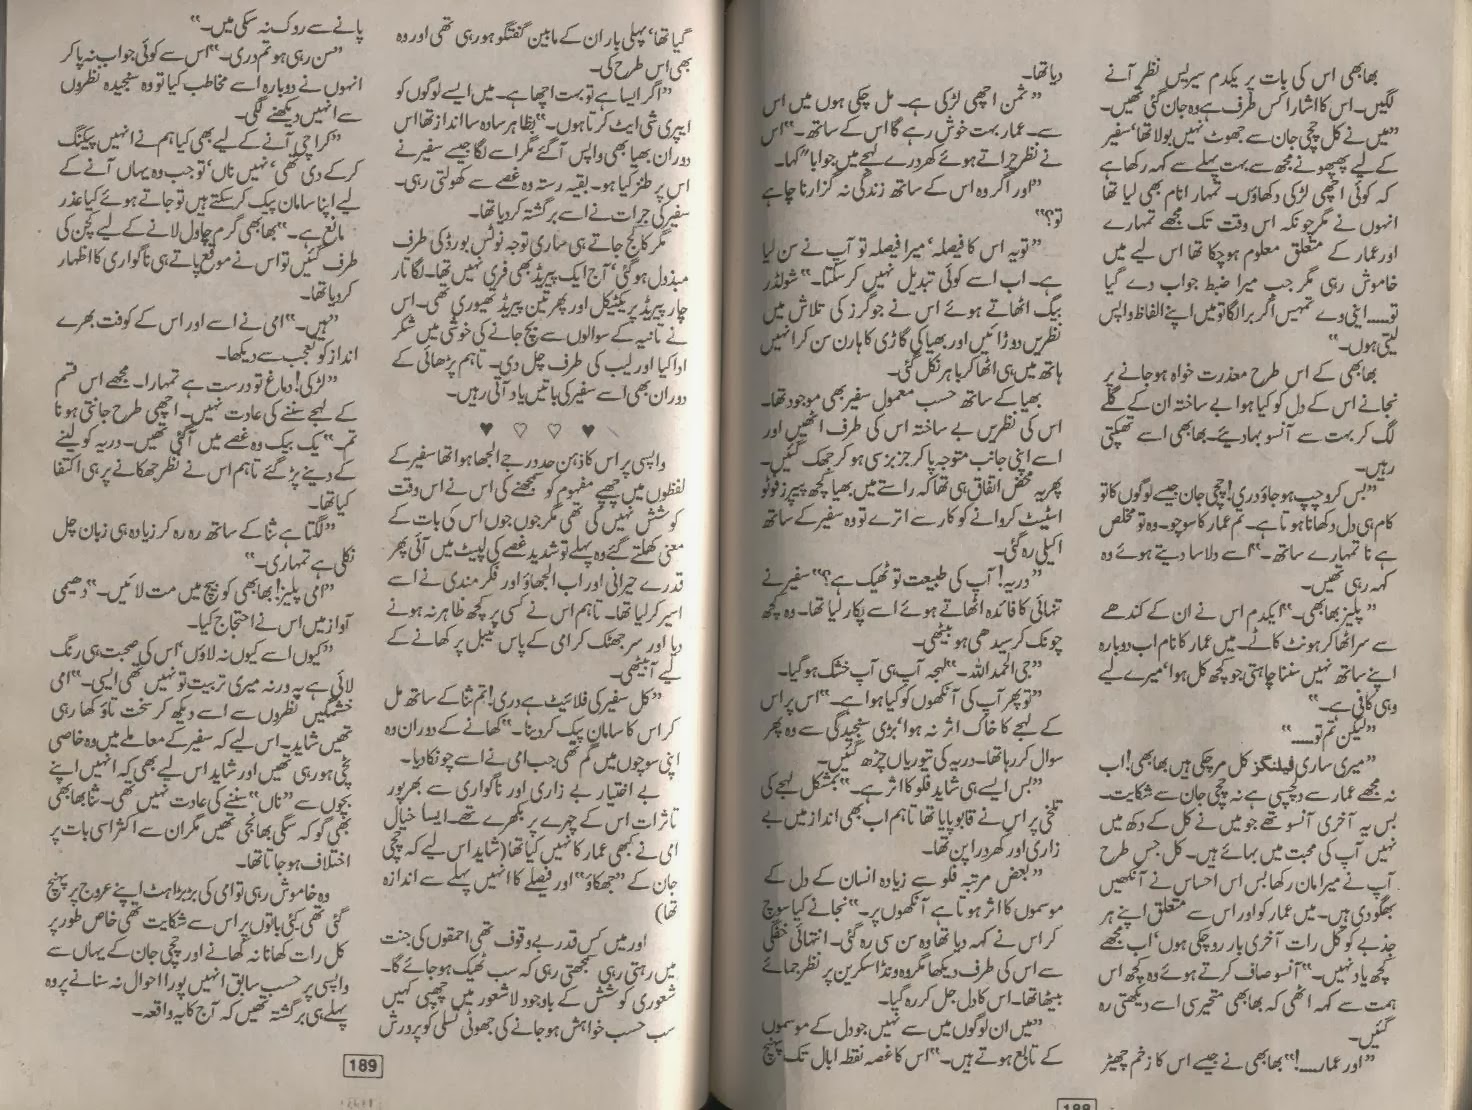 بھابھی اس کی بات پر یکدم سیریس نظر آنے
لگیں۔ اس کا اشارا کس طرف ہے وہ جان گئی تھیں۔
”میں نے کل چچی جان سے جھوٹ نہیں بولا تھا‘ سفیر
کے لیے پھپھو نے مجھ سے بہت پہلے سے کہہ رکھا ہے
کہ کوئی اچھی لڑکی دکھاؤں۔ تمہارا نام بھی لیا تھا
انہوں نے مگر چونکہ اس وقت تک مجھے تمہارے
اور عمار کے متعلق معلوم ہوچکا تھا اس لیے میں
خاموش رہی مگر جب میرا ضبط جواب دے گیا
تو۔۔۔۔ اینی وے تمہیں اگر برا لگا تو میں اپنے الفاظ واپس
لیتی ہوں۔“
بھابھی کے اس طرح معذرت خواہ ہوجانے پر
نجانے اس کے دل کو کیا ہوا بے ساختہ ان کے گلے
لگ کر بہت سے آنسو بہا دیئے۔ بھابھی اسے تھپکتی
رہیں۔
”بس کرو چپ ہو جاؤ دری! چچی جان جیسے لوگوں کا تو
کام ہی دل دکھانا ہوتا ہے۔ تم عمار کا سوچو۔ وہ تو مخلص
ہے نا تمہارے ساتھ۔“ اسے دلاسا دیتے ہوئے وہ
کہہ رہی تھیں۔
”پلیز بھابھی۔“ ایکدم اس نے ان کے کندھے
سے سر اٹھا کر ہونٹ کاٹے۔ میں عمار کا نام اب دوبارہ
اپنے ساتھ نہیں سننا چاہتی جو کچھ کل ہوا‘ میرے لیے
وہی کافی ہے۔“
”لیکن تم تو۔۔۔۔“
”میری ساری فیلنگز کل مرچکی ہیں بھابھی! اب
نہ مجھے عمار سے دلچسپی ہے نہ چچی جان سے شکایت۔
بس یہ آخری آنسو تھے جو میں نے کل کے دکھ میں
نہیں آپ کی محبت میں بہائے ہیں۔ کل جس طرح
آپ نے میرا مان رکھا بس اس احساس نے آنکھیں
بھگو دی ہیں۔ میں عمار کو اور اس سے متعلق اپنے ہر
جذبے کو کل رات آخری بار روچکی ہوں‘ اب مجھے
کچھ یاد نہیں۔“ آنسو صاف کرتے ہوئے وہ کچھ اس
ہمت سے کہہ اٹھی کہ بھابھی متحیر سی اسے دیکھتی رہ
گئیں۔
”اور عمار۔۔۔۔!“ بھابھی نے جیسے اس کا زخم چھیڑ
دیا تھا۔
”ثمن اچھی لڑکی ہے۔ مل چکی ہوں میں اس
سے۔ عمار بہت خوش رہے گا اس کے ساتھ۔“ اس
نے نظر چراتے ہوئے کھردرے لہجے میں جواباً کہا۔
”اور اگر وہ اس کے ساتھ زندگی نہ گزارنا چاہے
تو؟“
”تو یہ اس کا فیصلہ‘ میرا فیصلہ تو آپ نے سن لیا
ہے۔ اب اسے کوئی تبدیل نہیں کرسکتا۔“ شولڈر
بیگ اٹھاتے ہوئے اس نے جوگرز کی تلاش میں
نظریں دوڑائیں اور بھیا کی گاڑی کا ہارن سن کر انہیں
ہاتھ میں ہی اٹھا کر باہر نکل گئی۔
بھیا کے ساتھ حسب معمول سفیر بھی موجود تھا۔
اس کی نظریں بے ساختہ اس کی طرف اٹھیں اور
اسے اپنی جانب متوجہ پا کر جزبز سی ہو کر جھک گئیں۔
پھر یہ محض اتفاق ہی تھا کہ راستے میں بھیا کچھ پیپرز فوٹو
اسٹیٹ کروانے کو کار سے اترے تو وہ سفیر کے ساتھ
اکیلی رہ گئی۔
”دریہ! آپ کی طبیعت تو ٹھیک ہے؟“ سفیر نے
تنہائی کا فائدہ اٹھاتے ہوئے اسے پکار لیا تھا۔ وہ کچھ
چونک کر سیدھی ہو بیٹھی۔
”جی الحمد اللہ۔“ لہجہ آپ ہی آپ خشک ہوگیا۔
”تو پھر آپ کی آنکھوں کو کیا ہوا ہے۔“ اس پر اس
کے لہجے کا خاک اثر نہ ہوا‘ بڑی سنجیدگی سے وہ پھر
سوال کر رہا تھا۔ دریہ کی تیوریاں چڑھ گئیں۔
”بس ایسے ہی شاید فلو کا اثر ہے۔“ بمشکل لہجے کی
تلخی پر اس نے قابو پایا تھا تاہم اب بھی انداز میں بے
زاری اور کھردراپن تھا۔
”بعض مرتبہ فلو سے زیادہ انسان کے دل کے
موسموں کا اثر ہوتا ہے آنکھوں پر۔“ نجانے کیا سوچ
کر اس نے کہہ دیا تھا وہ سن سی رہ گئی۔ انتہائی خفگی
سے اس کی طرف دیکھا مگر وہ ونڈ اسکرین پر نظر جمائے
بیٹھا تھا۔ اس کا دل جل کر رہ گیا۔
”میں ان لوگوں میں سے نہیں جو دل کے موسموں
کے تابع ہوتے ہیں۔“ اس کا غصہ نقطہ ابال تک پہنچ
188
گیا تھا‘ پہلی بار ان کے مابین گفتگو ہو رہی تھی اور وہ
بھی اس طرح کی۔
”اگر ایسا ہے تو بہت اچھا ہے۔ میں ایسے لوگوں کو
ایپری شی ایٹ کرتا ہوں۔“ بظاہر سادہ سا انداز تھا اس
دوران بھیا بھی واپس آگئے مگر اسے لگا جیسے سفیر نے
اس پر طنز کیا ہو۔ بقیہ رستہ وہ غصے سے کھولتی رہی۔
سفیر کی جرات نے اسے برگشتہ کردیا تھا۔
مگر کالج جاتے ہی ساری توجہ نوٹس بورڈ کی طرف
مبذول ہوگئی‘ آج ایک پیریڈ بھی فری نہیں تھا۔ لگاتار
چار پیریڈ پریکٹیکل اور پھر تین پیریڈ تھیوری تھی۔ اس
نے تانیہ کے سوالوں سے بچ جانے کی خوشی میں شکر
ادا کیا اور لیب کی طرف چل دی۔ تاہم پڑھائی کے
دوران بھی اسے سفیر کی باتیں یاد آتی رہیں۔
♥ ♡ ♡ ♥
واپسی پر اس کا ذہن حد درجے الجھا ہوا تھا سفیر کے
لفظوں میں چھپے مفہوم کو سمجھنے کی اس نے اس وقت
کوشش نہیں کی تھی مگر جوں جوں اس کی بات کے
معنی کھلتے گئے وہ پہلے تو شدید غصے کی لپیٹ میں آئی پھر
قدرے حیرانی اور اب الجھاؤ اور فکر مندی نے اسے
اسیر کرلیا تھا۔ تاہم اس نے کسی پر کچھ ظاہر نہ ہونے
دیا اور سر جھٹک کر امی کے پاس ٹیبل پر کھانے کے
لیے آ بیٹھی۔
”کل سفیر کی فلائیٹ ہے دری! تم ثنا کے ساتھ مل
کر اس کا سامان پیک کردینا۔“ کھانے کے دوران وہ
اپنی سوچوں میں گم تھی جب امی نے اسے چونکا دیا۔
بے اختیار بے زاری اور ناگواری سے بھرپور
تاثرات اس کے چہرے پر بکھرے تھے۔ ایسا خیال
امی نے کبھی عمار کا نہیں کیا تھا (شاید اس لیے کہ چچی
جان کے ”جھکاؤ“ اور فیصلے کا انہیں پہلے سے اندازہ
تھا)
اور میں کس قدر بے وقوف تھی احمقوں کی جنت
میں رہتی رہی‘ سمجھتی رہی کہ سب ٹھیک ہوجائے گا۔
شعوری کوشش کے باوجود لاشعور میں چھپی کہیں
سب حسب خواہش ہوجانے کی جھوٹی تسلی کو پرورش
پانے سے روک نہ سکی میں۔“
”سن رہی ہو تم دری۔“ اس سے کوئی جواب نہ پا کر
انہوں نے دوبارہ اسے مخاطب کیا تو وہ سنجیدہ نظروں
سے انہیں دیکھنے لگی۔
”کراچی آنے کے لیے بھی کیا ہم نے انہیں پیکنگ
کرکے دی تھی‘ نہیں ناں‘ تو جب وہ یہاں آنے کے
لیے اپنا سامان پیک کرسکتے ہیں تو جاتے ہوئے کیا عذر
مانع ہے۔“ بھابھی گرم چاول لانے کے لیے کچن کی
طرف گئیں تو اس نے موقع پاتے ہی ناگواری کا اظہار
کردیا تھا۔
”ہیں۔“ امی نے اسے اور اس کے کوفت بھرے
انداز کو تعجب سے دیکھا۔
”لڑکی! دماغ تو درست ہے تمہارا۔ مجھے اس قسم
کے لہجے سننے کی عادت نہیں۔ اچھی طرح جانتی ہو نا
تم۔“ یک بیک وہ غصے میں آگئی تھیں۔ دریہ کو لینے
کے دینے پڑ گئے تاہم اس نے نظر جھکانے پر ہی اکتفا
کیا تھا۔
”لگتا ہے ثنا کے ساتھ رہ رہ کر زیادہ ہی زبان چل
نکلی ہے تمہاری۔“
”امی پلیز! بھابھی کو بیچ میں مت لائیں۔“ دھیمی
آواز میں اس نے احتجاج کیا۔
”کیوں اسے کیوں نہ لاؤں‘ اس کی صحبت ہی رنگ
لائی ہے یہ ورنہ میری تربیت تو نہیں تھی ایسی۔“ امی
خشمگیں نظروں سے اسے دیکھ کر سخت تاؤ کھا رہی
تھیں شاید۔ اس لیے کہ سفیر کے معاملے میں وہ خاصی
ٹچی ہو رہی تھیں اور شاید اس لیے بھی کہ انہیں اپنے
بچوں سے ”ناں“ سننے کی عادت نہیں تھی۔ ثنا بھابھی
بھی گو کہ سگی بھانجی تھیں مگر ان سے اکثر اسی بات پر
اختلاف ہوجاتا تھا۔
وہ خاموش رہی تو امی کی بڑبڑاہٹ اپنے عروج پر پہنچ
گئی تھی‘ کئی باتوں پر اس سے شکایت تھی خاص طور پر
کل رات کھانا نہ کھانے اور چچی جان کے یہاں سے
واپسی پر حسب سابق انہیں پورا احوال نہ سنانے پر وہ
پہلے ہی برگشتہ تھیں کہ آج کا یہ واقعہ۔
189